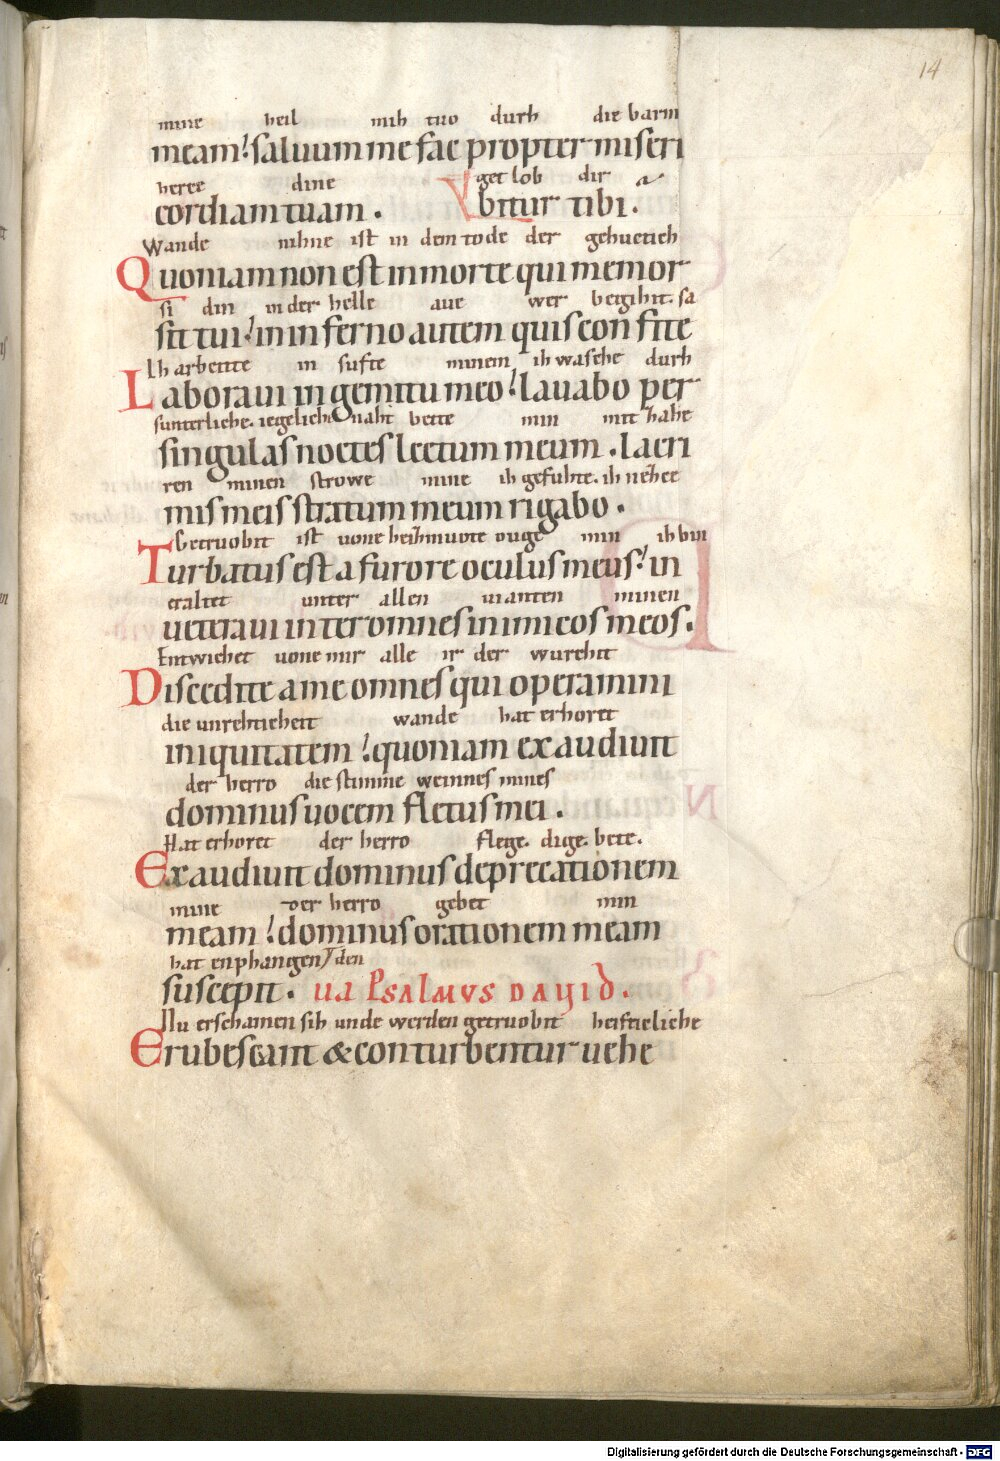 14
mine heil mih tuo durh die barm
meam. saluum me fac propter miseri
herce dine get lob dir
cordiam tuam. bitur tibi.
Wande nihne ist in dem tode der gehuctich
Quoniam non est in morte qui memor
si din in der helle aue wer begihit. sa
sit tui. in inferno autem quis confite
Ih arbeite in sufte minem ih wasche durh
Laboraui in gemitu meo. lauabo per
sunterliche. iegeliche naht bette min mit zahe
singulas noctes lectum meum. lacri
ren minen strowe mine ih gefuhte. ih
mis meis stratum meum rigabo.
Getruobit ist uone heizmuote ouge min ih bin
Turbatus est a furore oculus meus. in
eraltet unter allen uianten minen
ueteraui inter omnes inimicos meos.
Entwichet uone mir alle ir der wurchit
Discedite a me omnes qui operamini
die unrehticheit wande hat erhoret
iniquitatem. quoniam exaudiuit
der herro die stimme weinnes mines
dominus uocem fletus mei.
Hat erhoret der herro flege. dige. bete.
Exaudiuit dominus deprecationem
mine der herro gebet min
meam. dominus orationem meam
hat enphangen den
suscepit. ua Psalmus Dauid.
Nu erschamen sih unde werden getruobit heifticliche
Erubescant & conturbentur uehe
Digitalisierung gefördert durch die Deutsche Forschungsgemeinschaft - DFG